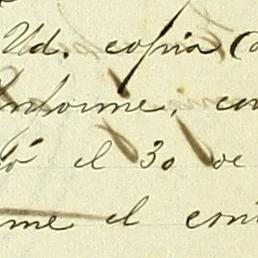 Ud. copia (
Informe, co
ó el 30 de
me el con